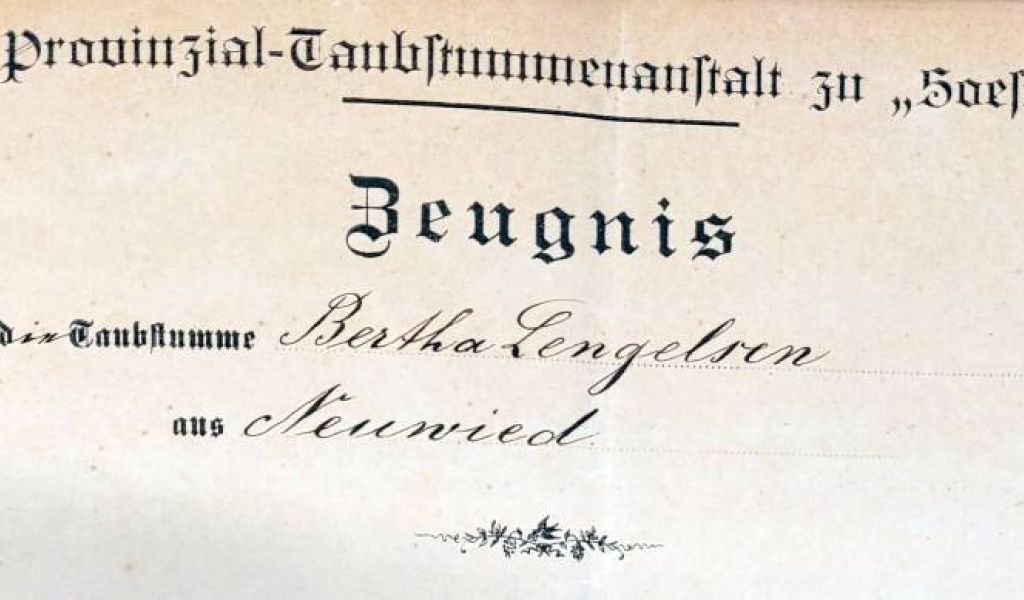 Provinzial-Taubstummenanstalt zu „Soest
Zeugnis
die Taubstumme Bertha Lengelsen
aus Neuwied